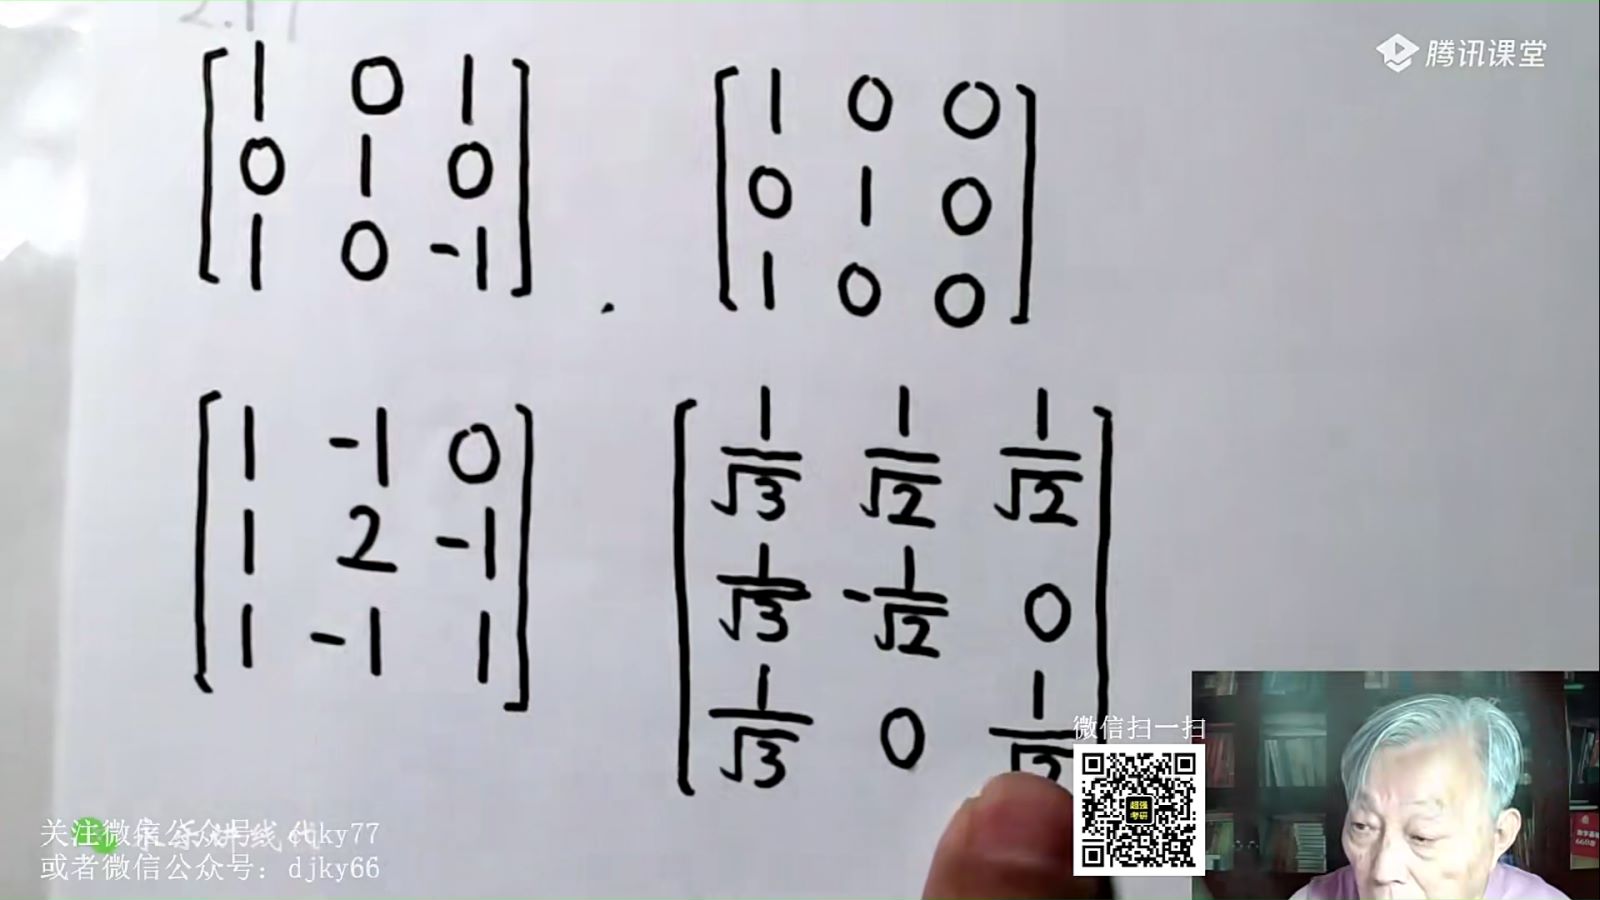 2.11
腾讯课堂
1 0 1
0 1 0
1 0 -1
1 0 0
0 1 0
1 0 0
1 -1 0
1 2 -1
1 -1 1
1/√3 1/√2 1/√2
1/√3 -1/√2 0
1/√3 0 1/√2
微信扫一扫
超强
考研
关注微信公众号: djky77
或者微信公众号: djky66